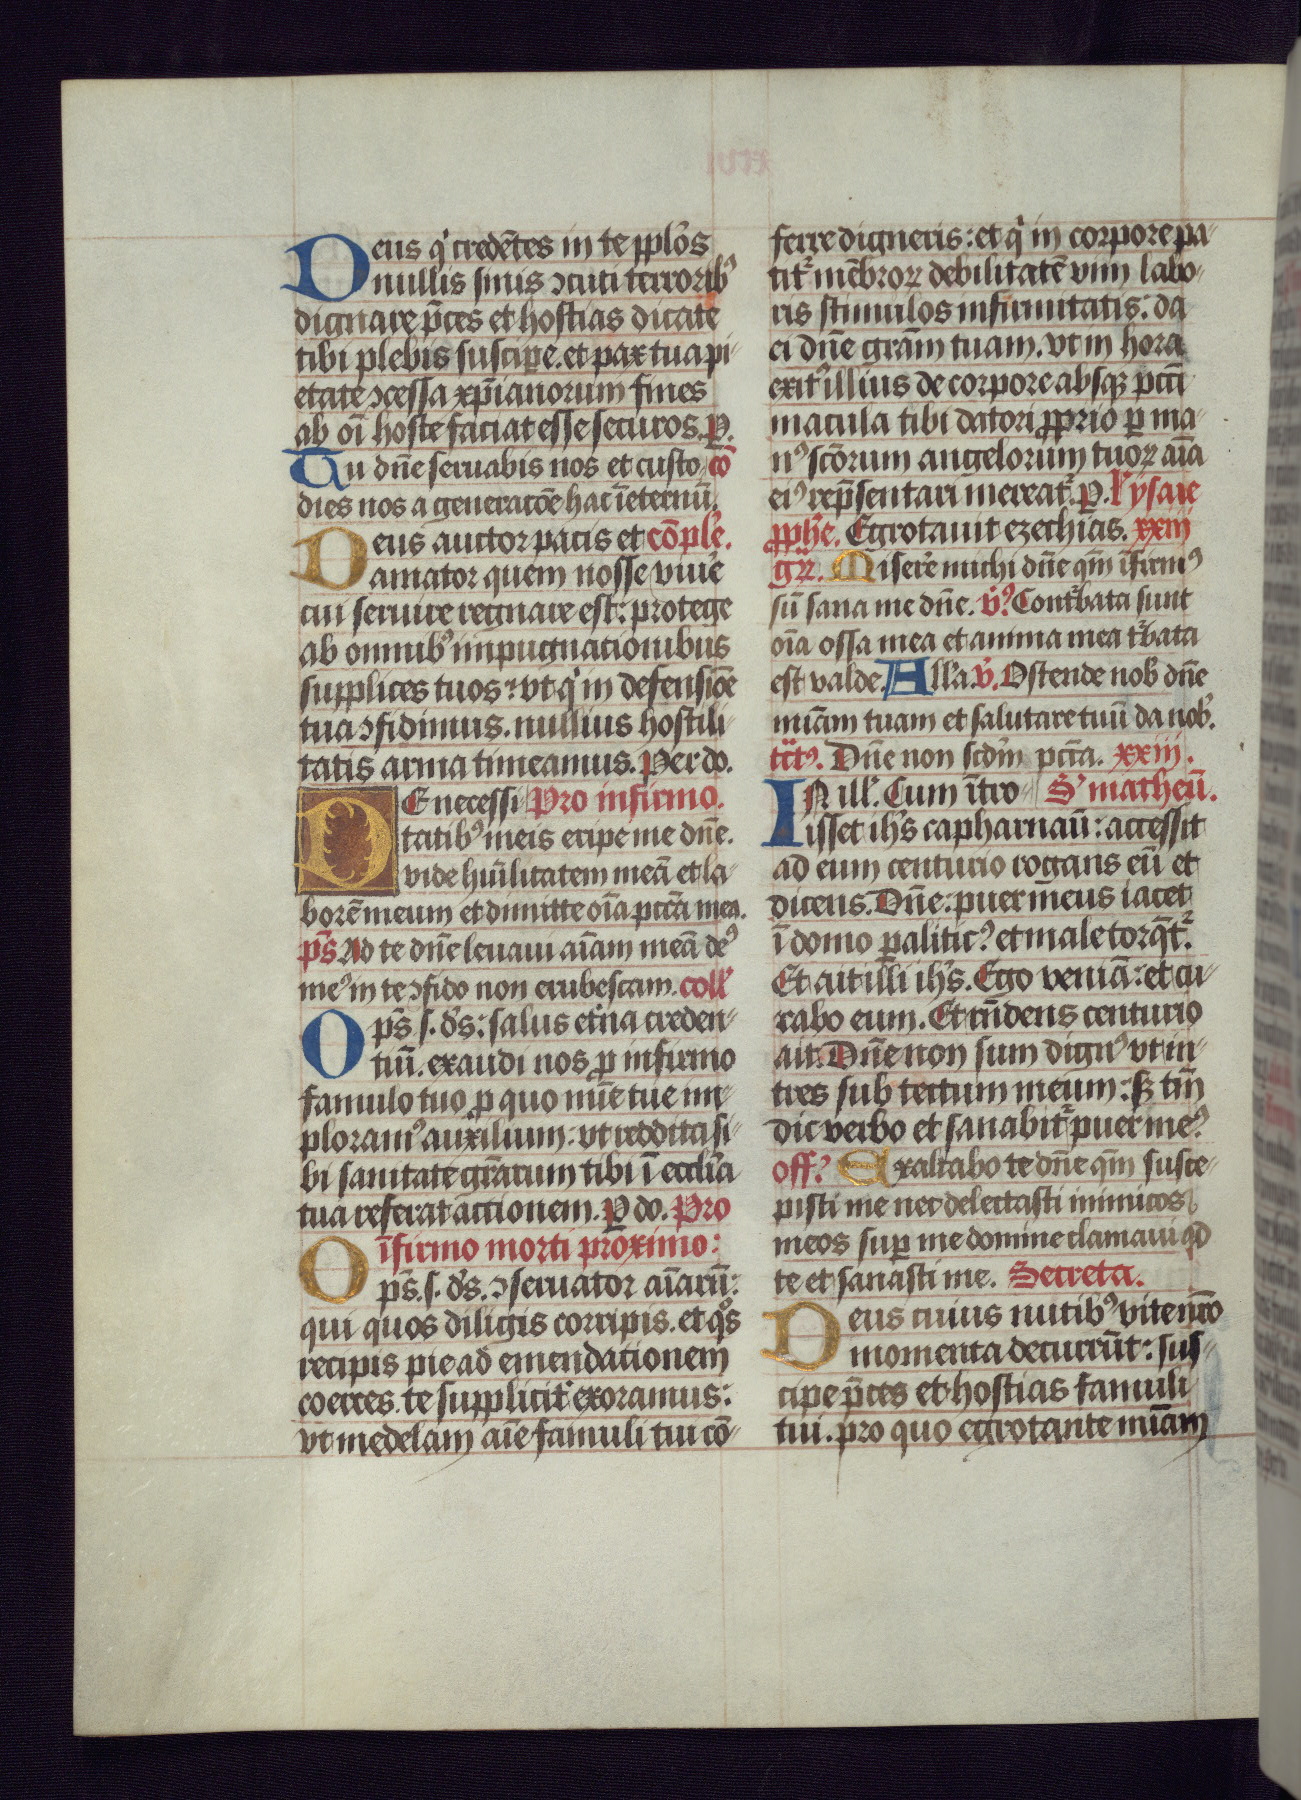 Deus q̇ credētes in te pplōs
nullis sinis ↄcuti terroribꝰ
dignare p̄ces et hostias dicate
tibi plebis suscipe. et pax tua pi-
etate ↄcessa xp̄ianorum fines
ab oī hoste faciat esse securos. P.
Tu dn̄e seruabis nos et custo- cō
dies nos a generatōe hac ī eternū.
Deus auctor pacis et cōple.
amator quem nosse viuĕ
cui seruire regnare est: protege
ab omnibꝰ impugnacionibus
supplices tuos: vt q̇ in defensiōe
tua ↄfidimus. nullius hostili-
tatis arma timeamus. Per do.
DE necessi- Pro infirmo.
tatibꝰ meis eripe me dn̄e.
vide hūilitatem meā et la-
borē meum et dimitte oīa pctā mea.
ps̄ Ad te dn̄e leuaui aīam meā deꝰ
meꝰ in te ↄfido non erubescam. coll'
Op̄s s. d's: salus et'na creden-
tiū. exaudi nos p infirmo
famulo tuo p quo mīe tue im-
ploramꝰ auxilium: vt reddita si-
bi sanitate gr̄arum tibi ī eccl'ia
tua referat actionem. P do. Pro
īfirmo morti proximo:
Op̄s. s. d's. ↄseruator aīarū:
qui quos diligis corripis. et qͦs
recipis pie ad emendationem
coerces. te supplicit' exoramus:
vt medelam aīe famuli tui cō-
ferre digneris: et q̇ in corpore pa-
tit᷑ mēbroꝝ debilitatē vim labo-
ris stimulos infirmitatis: da
ei dn̄e grām tuam. vt in hora
exitꝰ illius de corpore absqꝫ pctī
macula tibi datori pprio p ma-
nꝰ scōrum angelorum tuoꝝ aīa
eiꝰ rep̄sentari mereat᷑. P. l' ysaie
pph̄e. Egrotauit ezechias. xxiij
gr̄. Miserĕ michi dn̄e qm̄ īfirmꝰ
sū sana me dn̄e. v̄ꝰ Contͬbata sunt
oīa ossa mea et anima mea tͬbata
est valde. All'a. v̄. Ostende nob' dn̄e
mīam tuam et salutare tuū da nob'.
tctꝰ. Dn̄e non scdm̄ pctā. xxiij.
IN ill'. Cum ītro- S' matheū.
isset ih's capharnaū: accessit
ad eum centurio rogans eū et
dicens. Dn̄e: puer meus iacet
ī domo palitic⁹ et male torq̄t᷑.
Et ait illi ih's. Ego veniā: et cu-
rabo eum. Et rn̄dens centurio
ait. Dn̄e non sum dignꝰ vt in-
tres sub tectum meum: sꝫ tm̄
dic verbo et sanabit᷑ puer meꝰ.
off⁹ Exaltabo te dn̄e qm̄ susce-
pisti me nec delectasti inimicos
meos sup me domine clamaui qd
te et sanasti me. Secreta.
Deus cuius nutibꝰ vite nrͦo
momenta decurrūt: sus-
cipe p̄ces et hostias famuli
tui. pro quo egrotante mīam